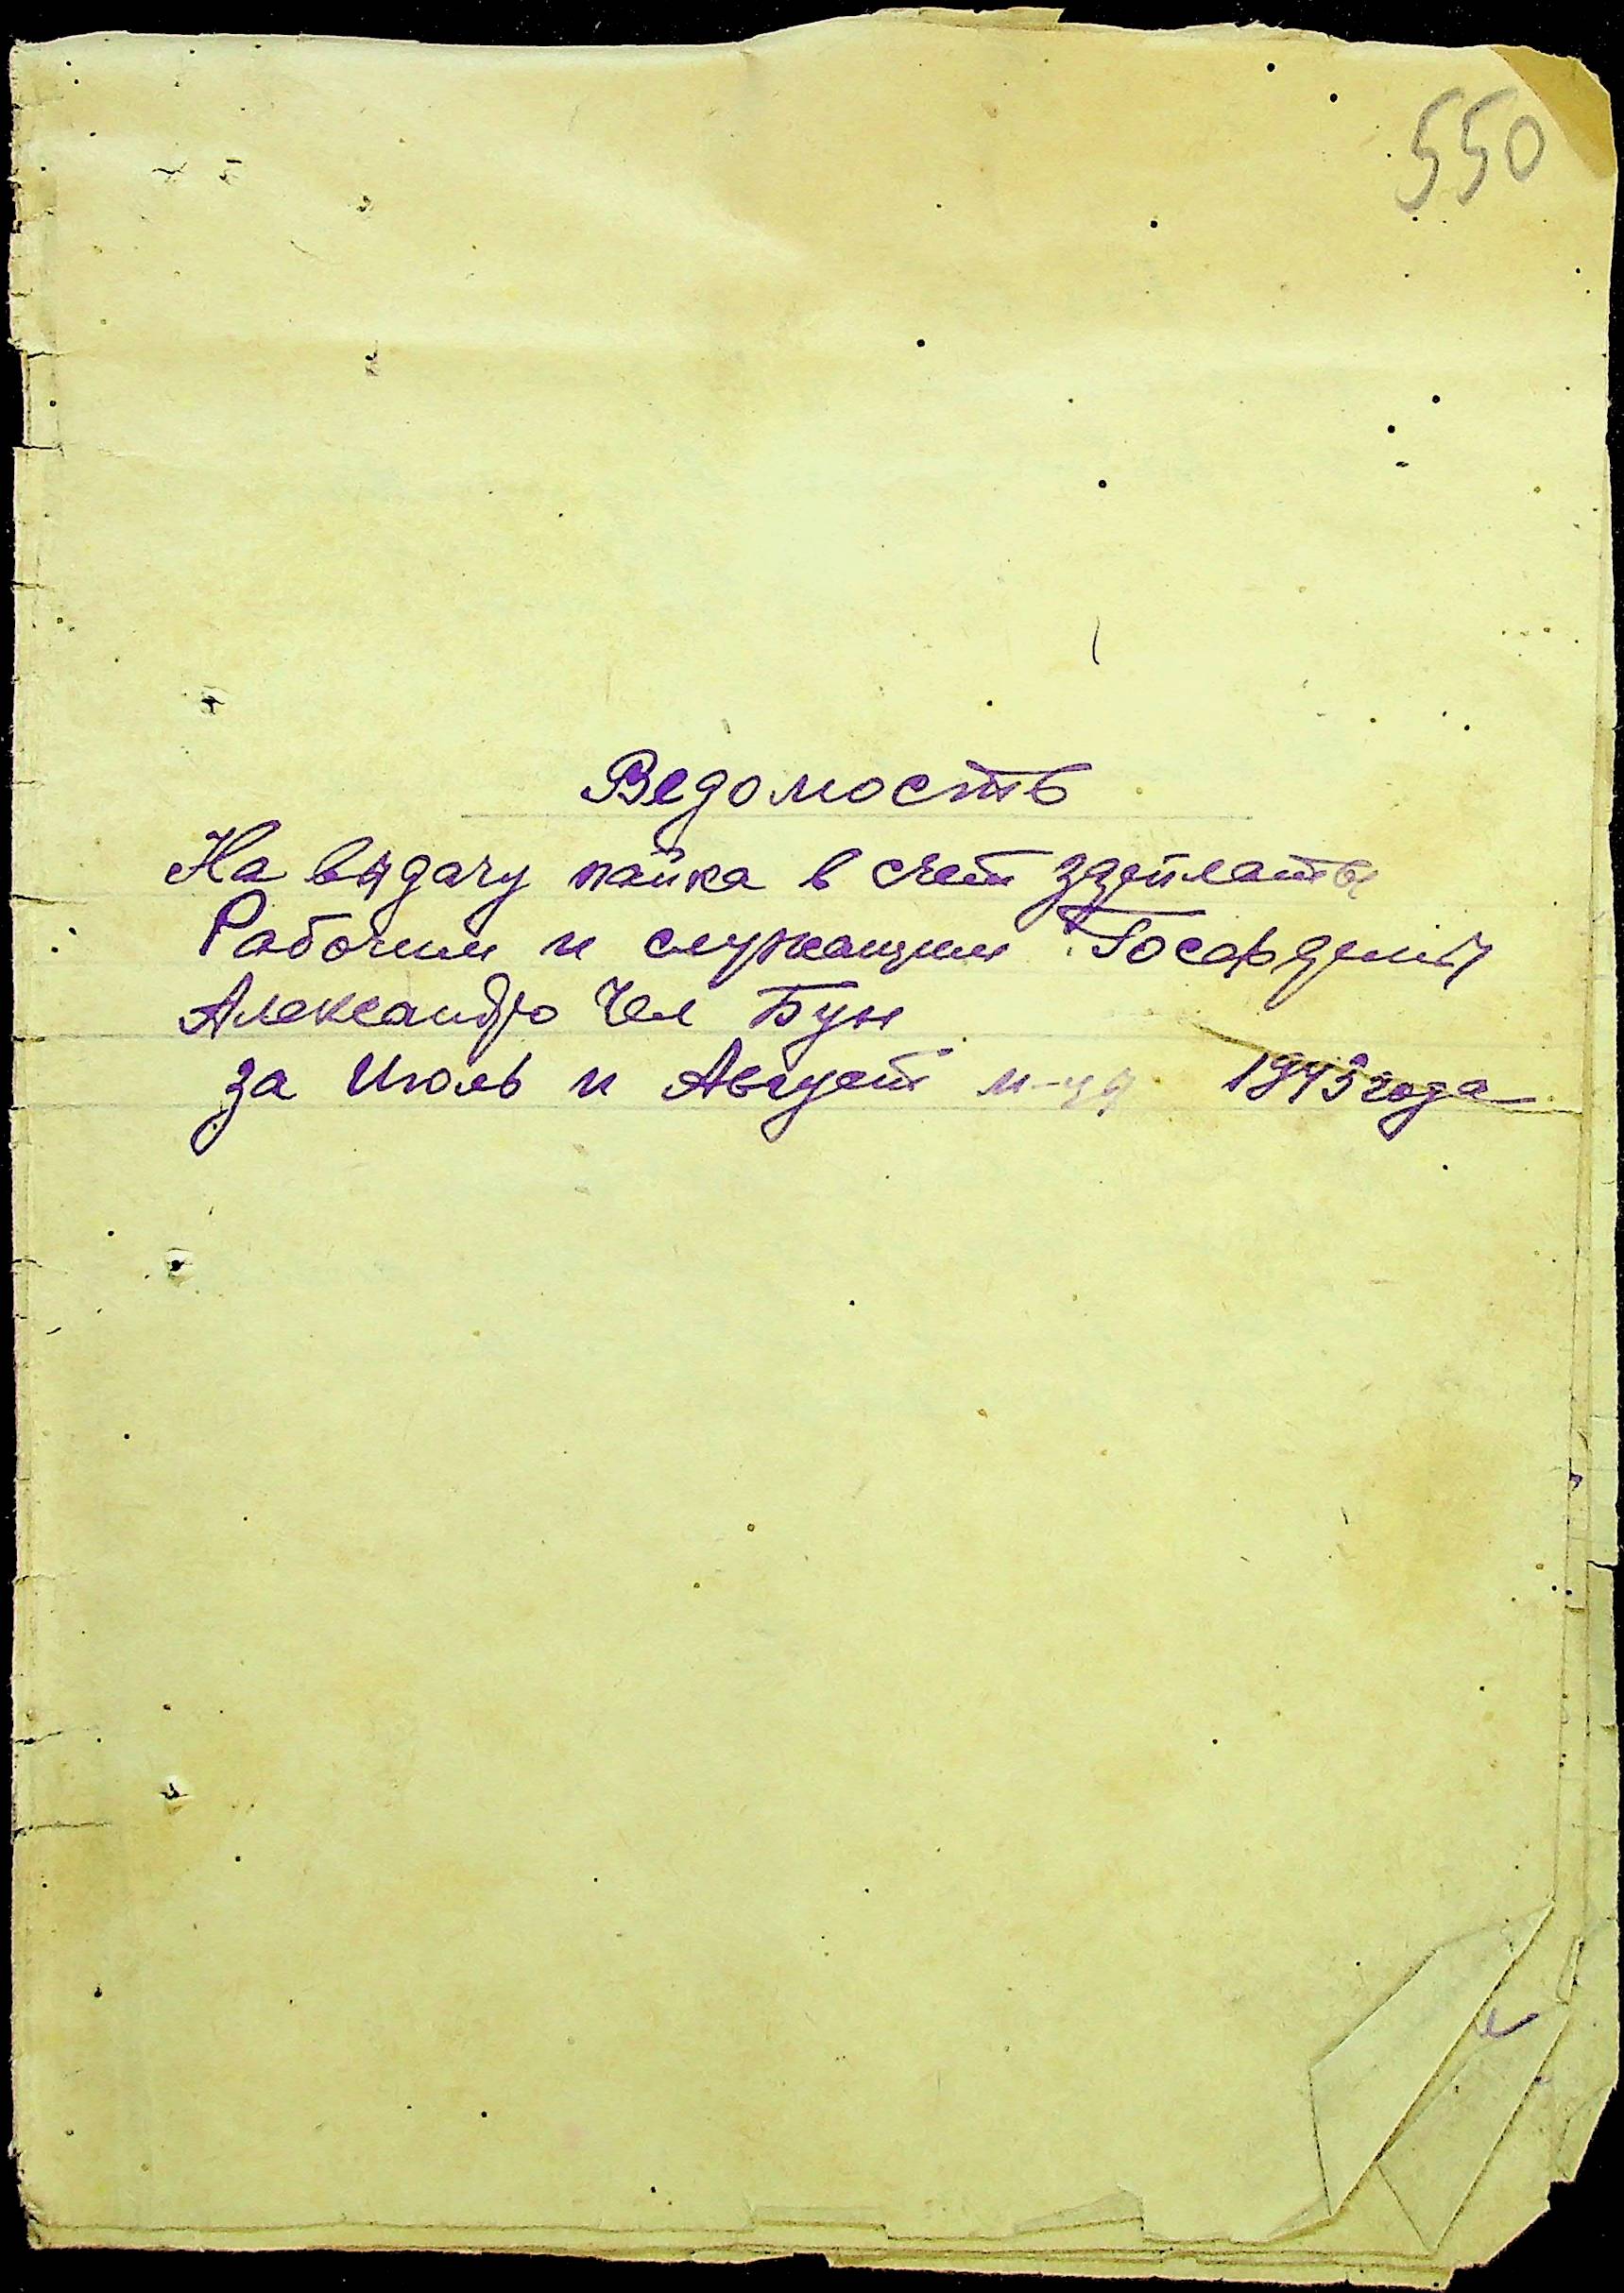 550
Ведомость
На выдачу пайка в счет зарплаты
Рабочим и служащим
Александро
за Июль и Август м-ця 1943 года